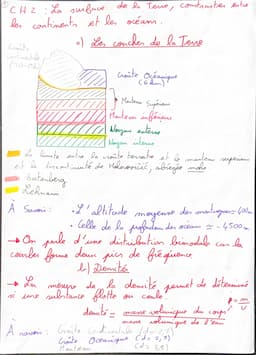 CH2 : La surface de la Terre, continuités entre
les continents et les océans.
a) Les couches de la Terre
Croûte
continentale
Croûte Océanique
Manteau Supérieur
Manteau inférieur
Noyau externe
Noyau interne
La limite entre la croûte terrestre et le manteau supérieur
est la discontinuité de Mohorovicic, abrégée Moho
Gutenberg
Lehmann
À savoir : - L'altitude moyenne des montagnes
- Celle de la profondeur des océans = -4500m
→ On parle d'une distribution bimodale car la
courbe forme deux pics de fréquence.
b) Densité
→ La mesure de la densité permet de déterminer
si une substance flotte ou coule.
densité = masse volumique du corps
masse volumique de l'eau
À savoir : Croûte continentale
Croûte Océanique
Manteau